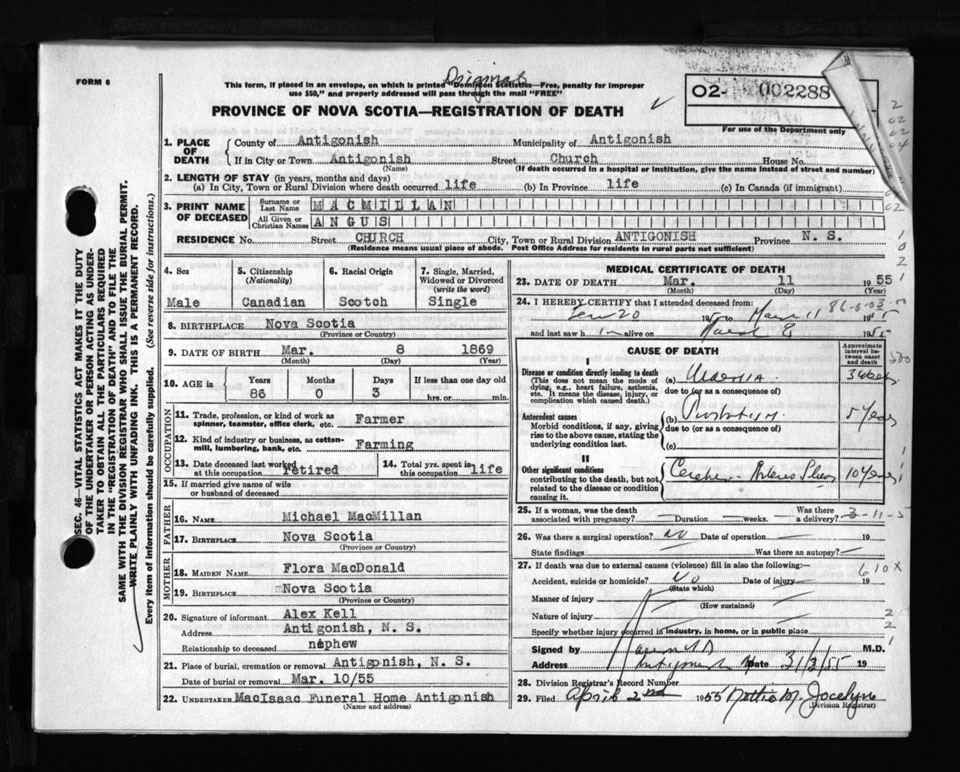 FORM 6
Original
This form, if placed in an envelope, on which is printed "Dominion Statistics—Free, penalty for improper
use $50," and properly addressed will pass through the mail "FREE"
PROVINCE OF NOVA SCOTIA—REGISTRATION OF DEATH
02- 002288
For use of the Department only
SEC. 46—VITAL STATISTICS ACT MAKES IT THE DUTY
OF THE UNDERTAKER OR PERSON ACTING AS UNDER-
TAKER TO OBTAIN ALL THE PARTICULARS REQUIRED
IN THE "REGISTRATION OF DEATH" AND TO FILE THE
SAME WITH THE DIVISION REGISTRAR WHO SHALL ISSUE THE BURIAL PERMIT.
WRITE PLAINLY WITH UNFADING INK. THIS IS A PERMANENT RECORD.
Every item of information should be carefully supplied. (See reverse side for instructions.)
1. PLACE OF DEATH
County of Antigonish Municipality of Antigonish
If in City or Town Antigonish Street Church House No.
(Name) (If death occurred in a hospital or institution, give the name instead of street and number)
2. LENGTH OF STAY (in years, months and days)
(a) In City, Town or Rural Division where death occurred life (b) In Province life (c) In Canada (if immigrant)
3. PRINT NAME OF DECEASED
Surname or Last Name MACMILLAN
All Given or Christian Names ANGUS
RESIDENCE No. Street CHURCH City, Town or Rural Division ANTIGONISH Province N. S.
(Residence means usual place of abode. Post Office Address for residents in rural parts not sufficient)
4. Sex
Male
5. Citizenship (Nationality)
Canadian
6. Racial Origin
Scotch
7. Single, Married, Widowed or Divorced (write the word)
Single
8. BIRTHPLACE Nova Scotia
(Province or Country)
9. DATE OF BIRTH Mar. 8 1869
(Month) (Day) (Year)
10. AGE in Years Months Days If less than one day old
86 0 3 hrs. or min.
OCCUPATION
11. Trade, profession, or kind of work as
spinner, teamster, office clerk, etc. Farmer
12. Kind of industry or business, as cotton-
mill, lumbering, bank, etc. Farming
13. Date deceased last worked
at this occupation retired
14. Total yrs. spent in
this occupation life
15. If married give name of wife
or husband of deceased
FATHER
16. NAME Michael MacMillan
17. BIRTHPLACE Nova Scotia
(Province or Country)
MOTHER
18. MAIDEN NAME Flora MacDonald
19. BIRTHPLACE Nova Scotia
(Province or Country)
20. Signature of informant Alex Kell
Address Antigonish, N. S.
Relationship to deceased nephew
21. Place of burial, cremation or removal Antigonish, N. S.
Date of burial or removal Mar. 10/55
22. UNDERTAKER MacIsaac Funeral Home Antigonish
(Name and address)
MEDICAL CERTIFICATE OF DEATH
23. DATE OF DEATH Mar. 11 1955
(Month) (Day) (Year)
24. I HEREBY CERTIFY that I attended deceased from: 86-0-03
20 19 to March 11 1955
and last saw h im alive on March 8 1955
CAUSE OF DEATH
Approximate interval between onset and death
I
Disease or condition directly leading to death
(This does not mean the mode of
dying, e.g., heart failure, asthenia,
etc. It means the disease, injury, or
complication which caused death.)
(a) Uremia 3 weeks
due to (or as a consequence of)
Antecedent causes
Morbid conditions, if any, giving
rise to the above cause, stating the
underlying condition last.
(b) 5 years
due to (or as a consequence of)
(c)
II
Other significant conditions
contributing to the death, but not
related to the disease or condition
causing it.
Cerebro- Arterio Scler 10 years
25. If a woman, was the death
associated with pregnancy? Duration weeks. Was there a delivery? 3-11-5
26. Was there a surgical operation? no Date of operation 19
State findings Was there an autopsy?
27. If death was due to external causes (violence) fill in also the following:— 610X
Accident, suicide or homicide? No Date of injury 19
(State which)
Manner of injury
(How sustained)
Nature of injury
Specify whether injury occurred in industry, in home, or in public place
Signed by M.D.
Address Antigonish Date 31/3/55 19
28. Division Registrar's Record Number
29. Filed April 2nd 1955 Nettie M. Jocelyn
(Division Registrar)